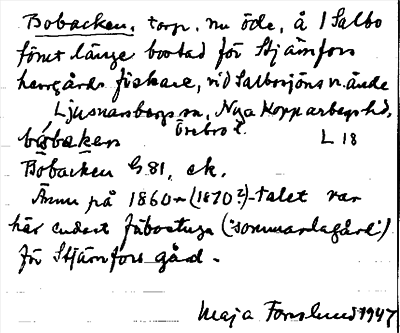 Bobacken, torp, nu öde, å 1 Salbo
förut länge bostad för Stjärnfors
herrgårds fiskare, vid Salbosjöns n. ände
Ljusnarsbergs sn, Nya Kopparbergs hd,
Örebro l.
bóbaken L 18
Bobacken G 81, ek.
Ännu på 1860- (1870?)-talet var
här endast fäbostuga ("sommarlagård")
för Stjärnfors gård.
Maja Forslund 1947